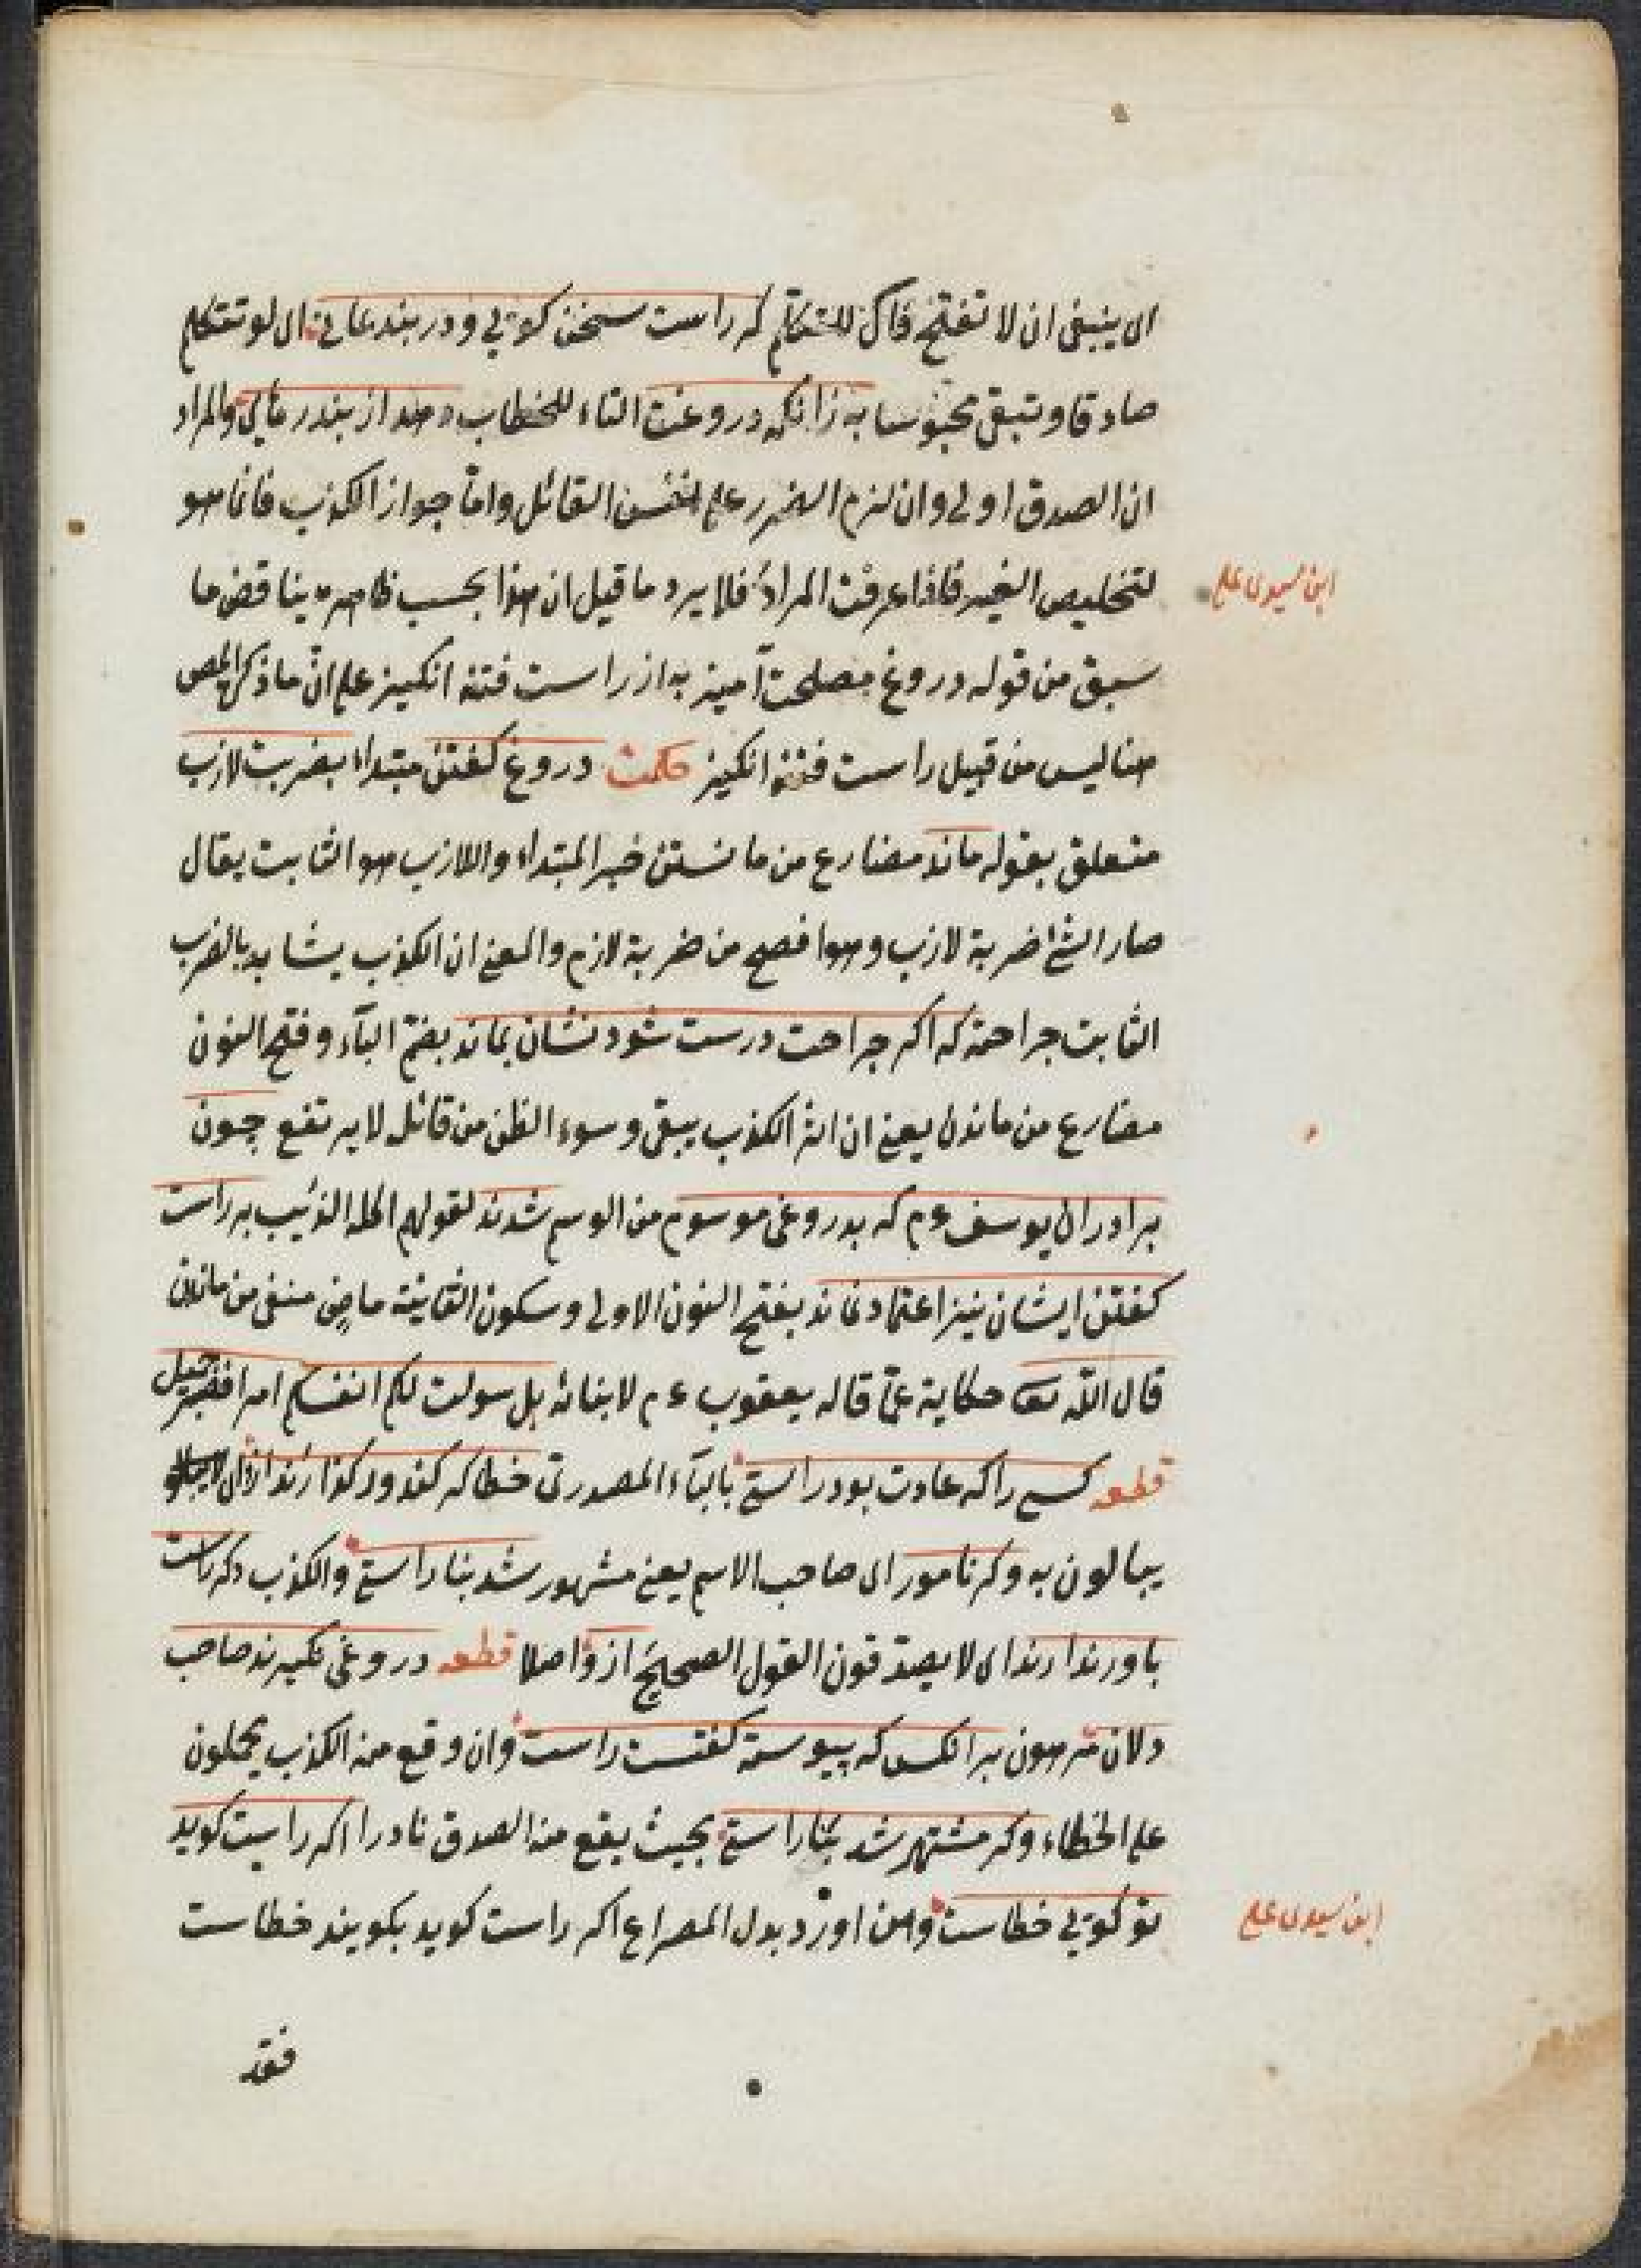 اى ينبغى ان لا تفتح فاك للتكلم كر راست سخن كويى ودر بند مانى اى لو تتكلم
صادقا وتبقى محبوسا به زانكه دروغت التاء للخطاب دهد از بند رهايى والمراد
ان الصدق اولى وان لزم الضرر على نفس القائل واما جواز الكذب فانما هو
لتخليص الغير فاذا عرفت المراد فلا يرد ما قيل ان هذا بحسب ظاهره يناقض ما
ابن سيدى على
سبق من قوله دروغ مصلحت آميز به از راست فتنه انكيز على ان ما ذكره المص
هنا ليس من قبيل راست فتنه انكيز حكمت دروغ كفتن مبتداء بضربت لازب
متعلق بقوله ماند مضارع من مانستن خبر المبتداء واللازب هو الثابت يقال
صار الشئ ضربة لازب وهو افصح من ضربة لازم والمعنى ان الكذب يشابه بالضرب
الثابت جراحته كه اكر جراحت درست شود نشان بماند بضم الباء وفتح النون
مضارع من ماندن يعنى ان اثر الكذب يبقى وسوء الظن من قائله لا يرتفع چون
برادران يوسف عم كه بدروغى موسوم من الوسم شدند لقولهم اكله الذئب به راست
كفتن ايشان نيز اعتماد نماند بفتح النون الاولى وسكون الثانية ماضى منفى من ماندن
قال الله تع حكاية عما قاله يعقوب عم لابنائه بل سولت لكم انفسكم امرا فصبر جميل
قطعه كسى را كه عادت بود راستى بالياء المصدرى خطا كر كند در كذارند ازو اى لا
يبالون به وكر نامور اى صاحب الاسم يعنى مشهور شد بنا راستى والكذب دكر راست
باور ندارند اى لا يصدقون القول الصحيح ازو اصلا قطعه دروغى نكيرند صاحب
دلان بر آنكس كه پيوسته كفتست راست وان وقع منه الكذب يحملون
على الخطاء وكر مشتهر شد بنا راستى بحيث يقع منه الصدق نادرا اكر راست كويد
تو كويى خطاست وابن اورد بدل المصراع اكر راست كويد بكويند خطاست
ابن سيدى على
فقد